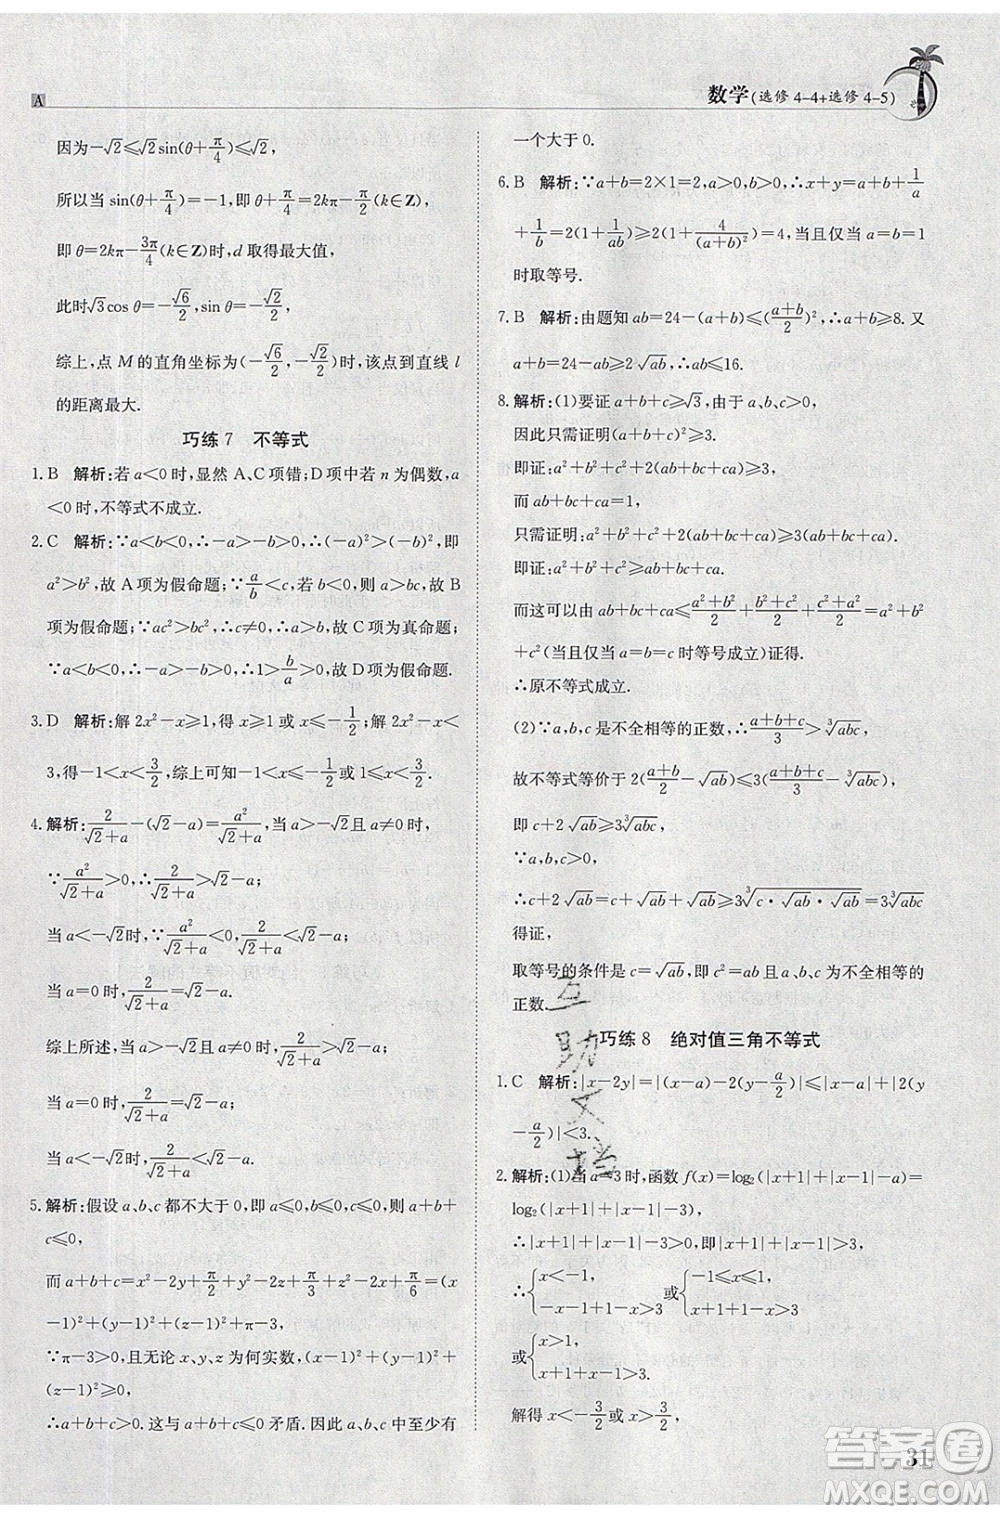 A
数学(选修 4-4+选修 4-5)
因为-√2≤√2sin(θ+π/4)≤√2,
所以当 sin(θ+π/4)=-1,即 θ+π/4=2kπ-π/2(k∈Z),
即 θ=2kπ-3π/4(k∈Z)时,d 取得最大值,
此时√3cos θ=-√6/2,sin θ=-√2/2,
综上,点 M 的直角坐标为(-√6/2,-√2/2)时,该点到直线 l
的距离最大.
巧练 7 不等式
1. B 解析:若 a<0 时,显然 A、C 项错;D 项中若 n 为偶数,a
<0 时,不等式不成立.
2. C 解析:∵a<b<0,∴-a>-b>0,∴(-a)²>(-b)²,即
a²>b²,故 A 项为假命题;∵a/b<c,若 b<0,则 a>bc,故 B
项为假命题;∵ac²>bc²,∴c≠0,∴a>b,故 C 项为真命题;
∵a<b<0,∴-a>-b>0,∴1>b/a>0,故 D 项为假命题.
3. D 解析:解 2x²-x≥1,得 x≥1 或 x≤-1/2;解 2x²-x<
3,得-1<x<3/2,综上可知-1<x≤-1/2或 1≤x<3/2.
4. 解析:2/(√2+a)-(√2-a)=a²/(√2+a),当 a>-√2且 a≠0 时,
∵a²/(√2+a)>0,∴2/(√2+a)>√2-a;
当 a<-√2时,∵a²/(√2+a)<0,∴2/(√2+a)<√2-a;
当 a=0 时,∵a²/(√2+a)=0,∴2/(√2+a)=√2-a.
综上所述,当 a>-√2且 a≠0 时,2/(√2+a)>√2-a;
当 a=0 时,2/(√2+a)=√2-a;
当 a<-√2时,2/(√2+a)<√2-a.
5. 解析:假设 a、b、c 都不大于 0,即 a≤0,b≤0,c≤0,则 a+b+
c≤0,
而 a+b+c=x²-2y+π/2+y²-2z+π/3+z²-2x+π/6=(x
-1)²+(y-1)²+(z-1)²+π-3,
∵π-3>0,且无论 x、y、z 为何实数,(x-1)²+(y-1)²+
(z-1)²≥0,
∴a+b+c>0. 这与 a+b+c≤0 矛盾. 故 a、b、c 中至少有
一个大于 0.
6. B 解析:∵a+b=2×1=2,a>0,b>0,∴a+1/a
+b+1/b=2(1+1/ab)≥2(1+4/(a+b)²)=4,当且仅当 a=b=1
时取等号.
7. B 解析:由题知 ab=24-(a+b)≤((a+b)/2)²,∴a+b≥8. 又
a+b=24-ab≥2√ab,∴ab≤16.
8. 解析:(1)要证 a+b+c≥√3,由于 a、b、c>0,
因此只需证明(a+b+c)²≥3.
即证:a²+b²+c²+2(ab+bc+ca)≥3,
而 ab+bc+ca=1,
只需证明:a²+b²+c²+2(ab+bc+ca)≥3(ab+bc+ca).
即证:a²+b²+c²≥ab+bc+ca.
而这可以由 ab+bc+ca≤(a²+b²)/2+(b²+c²)/2+(c²+a²)/2=a²+b²
+c²(当且仅当 a=b=c 时等号成立)证得.
∴原不等式成立.
(2)∵a、b、c 是不全相等的正数,∴(a+b+c)/3>∛abc,
故不等式等价于 2((a+b)/2-√ab)≤3((a+b+c)/3-∛abc),
即 c+2√ab≥3∛abc.
∵a、b、c>0,
∴c+2√ab=c+√ab+√ab≥3∛(c·√ab·√ab)=3∛abc,
得证.
取等号的条件是 c=√ab,即 c²=ab,且 a、b、c 为不全相等的
正数.
巧练 8 绝对值三角不等式
1. C 解析:|x-2y|=|(x-a)-2(y-a/2)|≤|x-a|+2|(y
-a/2)|<3.
2. 解析:(1)当 a=3 时,函数 f(x)=log₂(|x+1|+|x-1|-a)=
log₂(|x+1|+|x-1|-3),
∴|x+1|+|x-1|-3>0,即|x+1|+|x-1|>3,
∴{x<-1, -x-1-x+1>3 或{-1≤x≤1, x+1+1-x>3
或{x>1, x+1+x-1>3,
解得 x<-3/2或 x>3/2,
互助文档
答案圈
MXQE.COM
31